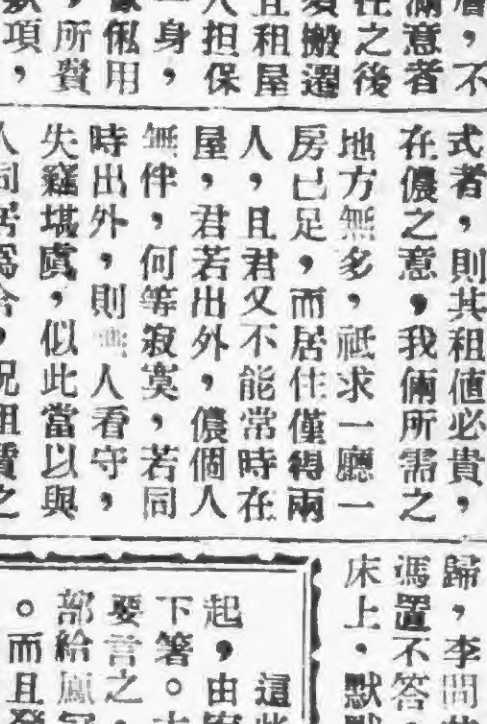 層，不
滿意者
住之後
須搬遷
且租屋
人担保
一身，
傢俬用
，所費
數項，
式者，則其租值必貴，
在儂之意，我倆所需之
地方無多，祗求一廳一
房已足，而居住僅得兩
人，且君又不能常時在
屋，君若出外，儂個人
無伴，何等寂寞，若同
時出外，則無人看守，
失竊堪虞，似此當以與
人同居爲合，況租賃之
歸，李問
馮置不答
床上，默
這些
起，由
下箸。
要言之，
部給
。而且發